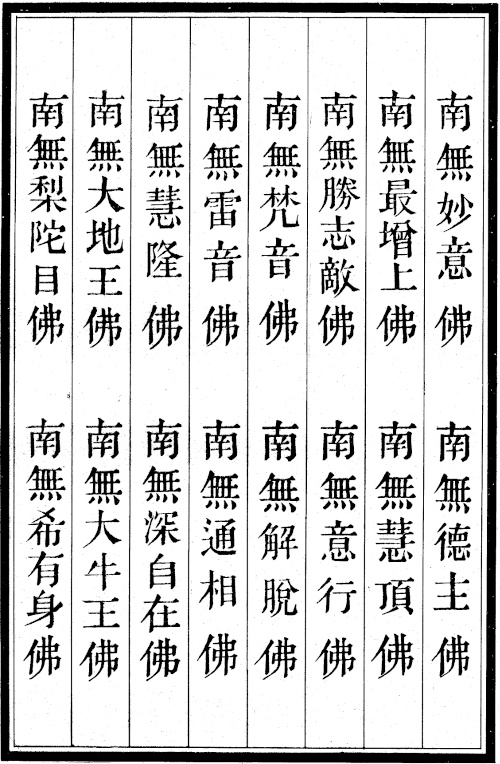 南無妙意佛　南無德主佛
南無最增上佛　南無慧頂佛
南無勝志敵佛　南無意行佛
南無梵音佛　南無解脫佛
南無雷音佛　南無通相佛
南無慧隆佛　南無深自在佛
南無大地王佛　南無大牛王佛
南無梨陀目佛　南無希有身佛